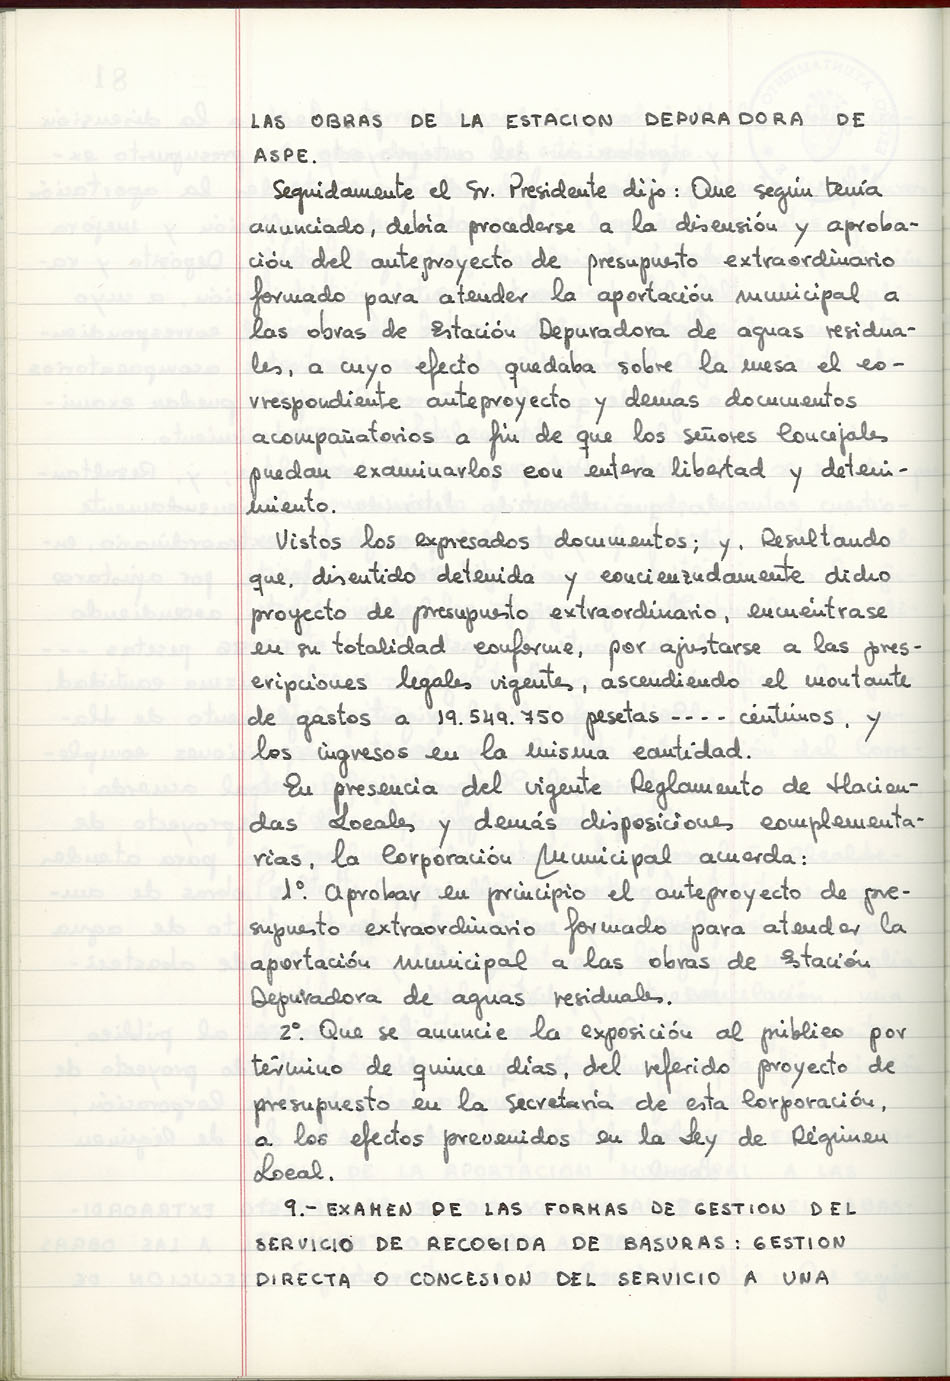 LAS OBRAS DE LA ESTACION DEPURADORA DE
ASPE.
Seguidamente el Sr. Presidente dijo: Que según tenía
anunciado, debía procederse a la discusión y aproba-
ción del anteproyecto de presupuesto extraordinario
formado para atender la aportación municipal a
las obras de Estación Depuradora de aguas residua-
les, a cuyo efecto quedaba sobre la mesa el co-
rrespondiente anteproyecto y demas documentos
acompañatorios a fin de que los señores Concejales
puedan examinarlos con entera libertad y deteni-
miento.
Vistos los expresados documentos; y, Resultando
que, discutido detenida y concienzudamente dicho
proyecto de presupuesto extraordinario, encuéntrase
en su totalidad conforme, por ajustarse a las pres-
cripciones legales vigentes, ascendiendo el montante
de gastos a 19.549.750 pesetas ---- céntimos, y
los ingresos en la misma cantidad.
En presencia del vigente Reglamento de Hacien-
das Locales y demás disposiciones complementa-
rias, la Corporación Municipal acuerda:
1º. Aprobar en principio el anteproyecto de pre-
supuesto extraordinario formado para atender la
aportación municipal a las obras de Estación
Depuradora de aguas residuales.
2º. Que se anuncie la exposición al público por
término de quince días, del referido proyecto de
presupuesto en la Secretaría de esta Corporación,
a los efectos prevenidos en la Ley de Régimen
Local.
9.- EXAMEN DE LAS FORMAS DE GESTION DEL
SERVICIO DE RECOGIDA DE BASURAS: GESTION
DIRECTA O CONCESION DEL SERVICIO A UNA